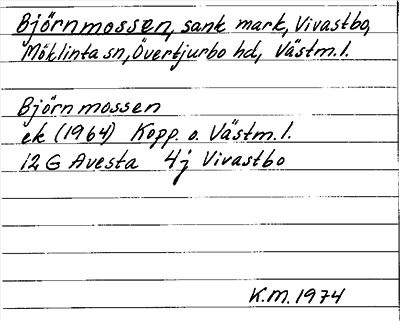 Björnmossen, sank mark, Vivastbo,
Möklinta sn, Övertjurbo hd, Västm. l.
Björnmossen
ek (1964) Kopp. o. Västm. l.
12 G Avesta 4j Vivastbo
K.M. 1974